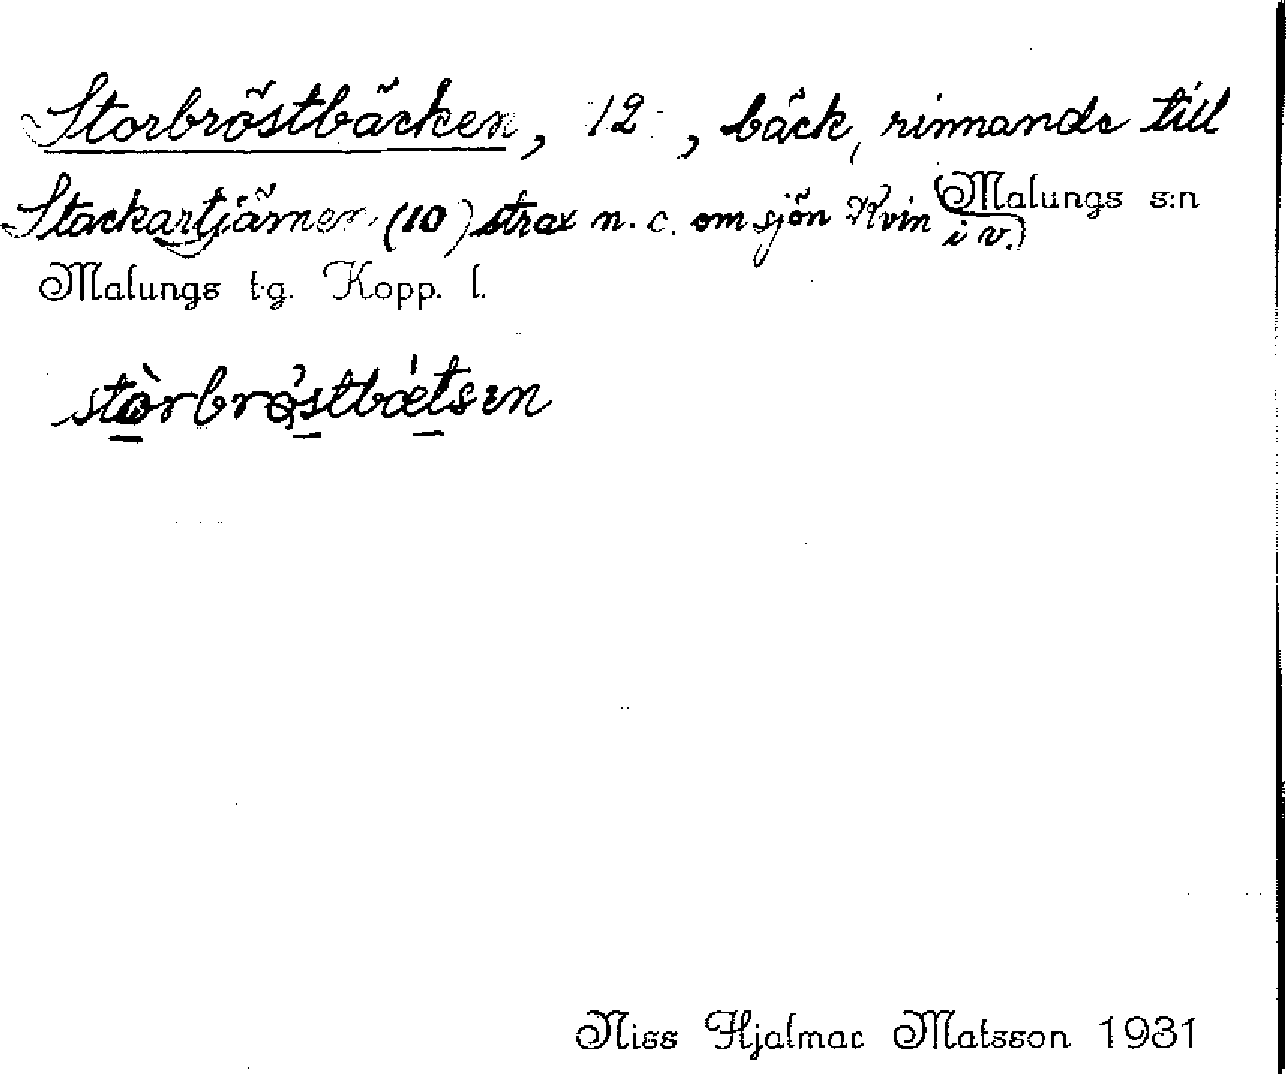 Storbröstbäcken, 12, bäck, rinnande till
Stackartjärnen (10) strax n. o. om sjön Kvin (i v.) Malungs s:n
Malungs t.g. Kopp. l.
stòrbrǿstbǽtsen
Niss Hjalmar Matsson 1931